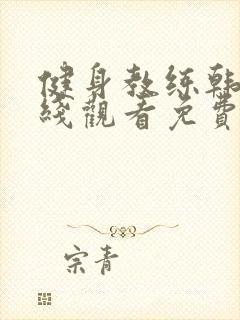 健身教练韩
线观看免费
宗青